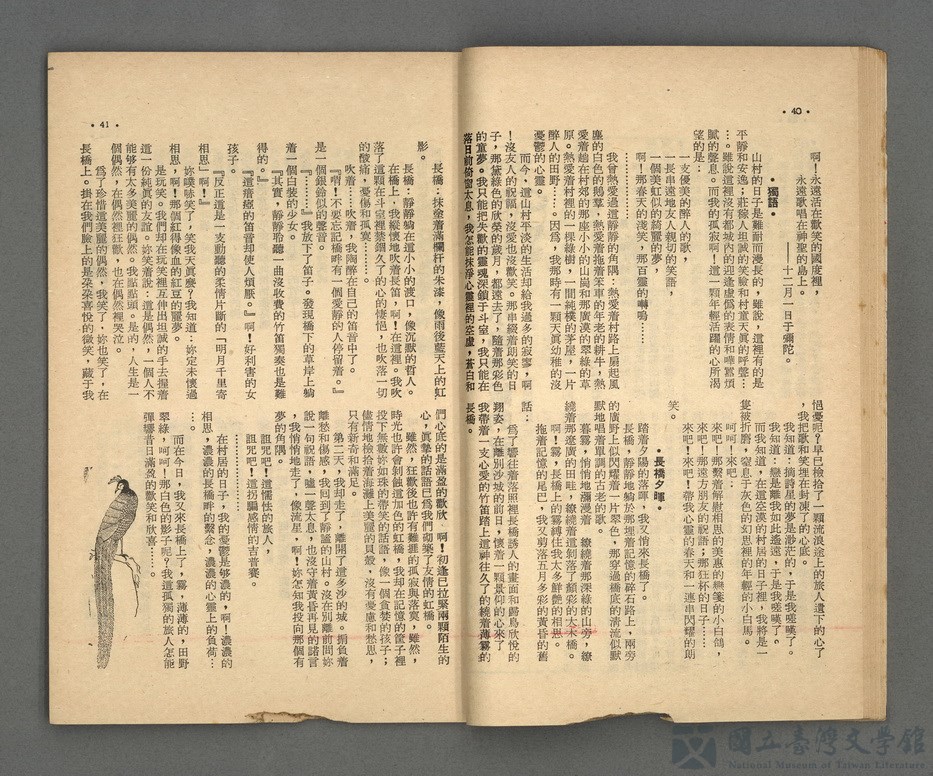 •40•
啊！永遠活在歡笑的國度裡，
永遠歌唱在神聖的島上。
——十二月一日于彌陀。
•獨語。
山村的日子是難耐而漫長的，雖說，這裡有的是
平靜和安逸，莊稼人坦誠的笑臉和村童天眞的呼聲…
…。雖說這裡沒有都城內的迎逢虛僞的表情和嘩煩
膩的聲息。而我的孤寂啊！這一顆年輕活躍的心所渴
望的是：
一支優美的醉人的歌，
一長串遠地友人親切的笑語，
一個美虹似的綺麗的夢，
啊！那春天的淺笑，那百靈的囀鳴……
…………
我曾熱愛過這靜靜的角隅：熱愛着村路上扇起風
塵的白色的鵝羣，熱愛着拖着笨車的年老的耕牛，熱
愛着趟在村後的那座小小的山崗和那廣漠的翠綠的草
原。熱愛着村裡的一棵綠樹，一間純樸的茅屋，一片
入目的田野……。因爲，我那時有一顆天眞幼稚的沒
憂鬱的心靈。
而今，這山村平淡的生活却給我過多的寂寥，啊
！沒友人的祝福，沒愛也沒歡笑。那串綴着朗笑的日
子，那黛綠色的欣榮的歲月，都遠去了，隨着那彩色
的童夢。我只能把失歡的靈魂深鎖于斗室，我只能在
落日前倚窗太息，我怎能抹淨心靈裡的空虛，蒼白和
悒憂呢？早已檢拾了一顆流浪途上的旅人遺下的心了
，我把歌和笑埋在封凍了的心底。
我知道：摘詩星的夢是渺茫的，于是我嗟嘆了。
我知道：戀是離我如此遙遠，于是我嗟嘆了。
而我知道，在這空漠的村居的日子裡，我將是一
隻被折磨，窒息于灰色的幻思裡的年輕的小白馬。
呵呵！來吧：
來吧！那繫着解慰相思的美惠的戀箋的小白鴿，
來吧！那遠方朋友的祝語；那狂杯的日子……
來吧！來吧！帶我心靈的春天和一連串閃耀的朗
笑。
•長橋夕暉。
踏着夕陽的落暉，我又悄來長橋了。
長橋，靜靜地躺於那埴着記憶的碎石路上，兩旁
的廣野上似閃耀着一片翠色，那穿過橋底的清流似默
默地唱着單調的古老的歌。
暮霧，悄悄地瀰漫着，繚繞着那深綠的山旁，繚
繞着那遼廣的田畦，繚繞着這剝落了顏彩的大木橋。
啊！霧，長橋上的霧縛住我太多鮮艷的相思。
拖着記憶的尾巴，我又剪落五月多彩的黃昏的舊
話：
爲了響往着落照裡長橋誘人的畫面和歸鳥欣悅的
翔姿，在離別沙城的前日，懷着一顆景仰的心來了。
我帶着一支心愛的竹笛踏上這神往久了的繞着薄霧的
長橋。
•41•
長橋：抹塗着滿欄杆的朱漆，像雨後藍天上的虹
影。
長橋，靜靜躺在這小小的渡口，像沉默的哲人。
在橋上，我縱懷地吹着長笛，啊！在這裡。我吹
落了這顆在斗室裡禁錮久了的心的悽悒，也吹落一切
的酸痛，憂傷和孤寞……。
吹着……吹着，我陶醉在自己的笛音中了。
『喂！不要忘記橋畔有一個愛靜的人停留着。』
是一個銀鈴似的聲音。
『……』我放下了笛子。發現橋下的草岸上躺
着一個白裝的少女。
『其實，靜靜聆聽一曲沒收費的竹笛獨奏也是難
得的。』
『這瘖瘂的笛音却使人煩厭。』啊！好利害的女
孩子。
『反正這是一支動聽的柔情片斷的「明月千里寄
相思」啊！』
妳噗哧笑了，笑我天眞麽？我知道：妳定未懷過
相思，啊！那個紅得像血的紅豆的噩夢。
是玩笑。我們却在玩笑裡互伸出坦誠的手去握着
這一份純眞的友誼。妳笑着說：這是偶然，一個人不
能够有太多美麗的偶然。我點點頭。是的，人生是一
個偶然，在偶然裡狂歡，也在偶然裡哭泣。
爲了珍惜這美麗的偶然，我笑了．妳也笑了，在
長橋上。掛在我們臉上的是朶朶喜悅的微笑，藏于我
們心底的是滿盈的歡欣，啊！初逢已拉緊兩顆陌生的
心，眞摯的話語已爲我們砌築了友情的虹橋。
雖然，狂歡後也許有難捱的孤寂與落寞，雖然，
時光也許會剝蝕這加色的虹橋，我却在記憶的筐子裡
投下無數妳如珠的帶笑的話語，像一個貪婪的孩子；
儘情地檢拾着海灘上美麗的貝殼，沒有憂慮和愁思，
只有新奇和滿足。
第二天，我却走了，離開了這多沙的城。揹負着
離愁和傷感，我回到了靜謐的山村。沒在別離前問妳
說一句祝語，嘘一聲太息，也沒守着黃昏再見的諾言
，我悄悄地走了，像流星，啊！妳怎知我投向那個有
夢的角隅。
詛咒吧！這懦怯的旅人，
詛咒吧！這拐騙感情的吉普賽。
…………
在村居的日子，我的憂鬱是够濃的，啊！濃濃的
相思，濃濃的長橋畔的繫念，濃濃的心靈上的負荷…
…。
而在今日，我又來長橋上了，霧，薄薄的，田野
翠綠，呵呵！那白色的影子呢？我這孤獨的旅人怎能
彈響昔日滿盈的歡笑和欣喜……。
國立臺灣文學館
National Museum of Taiwan Literature